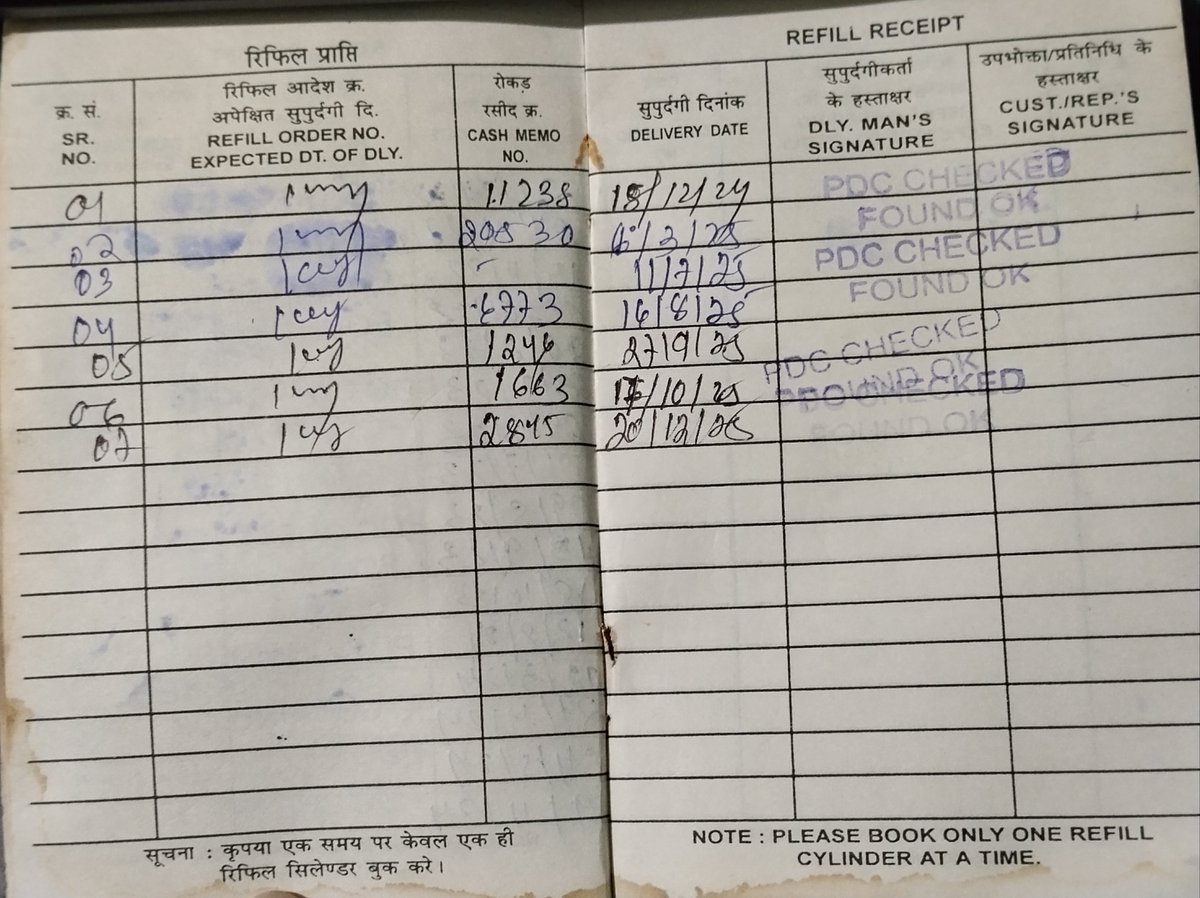 रिफिल प्राप्ति
REFILL RECEIPT
क्र. सं.
SR.
NO.
रिफिल आदेश क्र.
अपेक्षित सुपुर्दगी दि.
REFILL ORDER NO.
EXPECTED DT. OF DLY.
रोकड़
रसीद क्र.
CASH MEMO
NO.
सुपुर्दगी दिनांक
DELIVERY DATE
सुपुर्दगीकर्ता
के हस्ताक्षर
DLY. MAN'S
SIGNATURE
उपभोक्ता/प्रतिनिधि के
हस्ताक्षर
CUST./REP.'S
SIGNATURE
01 11238 18/12/24
PDC CHECKED
FOUND OK
02 20830 6/3/25
03 11/7/25
PDC CHECKED
FOUND OK
04 6773 16/8/25
05 1246 27/9/25
PDC CHECKED
FOUND OK
06 1663 /10/25
PDC CHECKED
FOUND OK
07 2845 20/12/25
सूचना : कृपया एक समय पर केवल एक ही
रिफिल सिलेण्डर बुक करे।
NOTE : PLEASE BOOK ONLY ONE REFILL
CYLINDER AT A TIME.